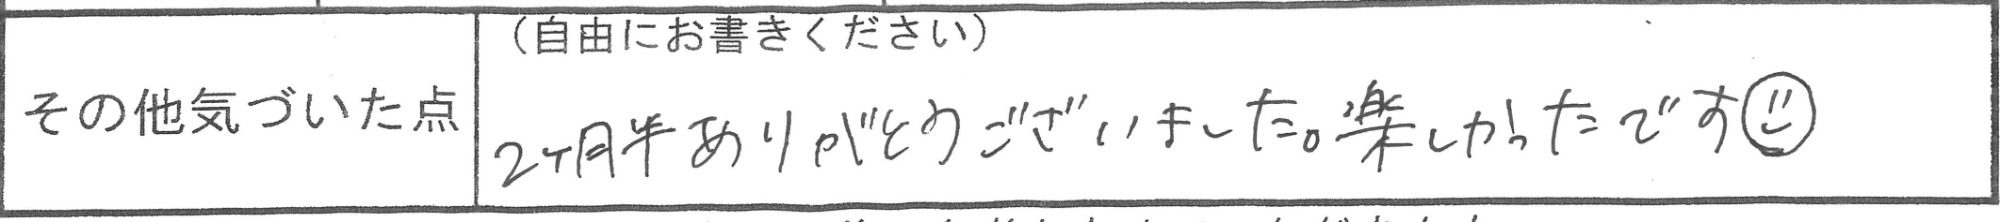 (自由にお書きください)
その他気づいた点
2ヶ月半ありがとうございました。楽しかったです☺